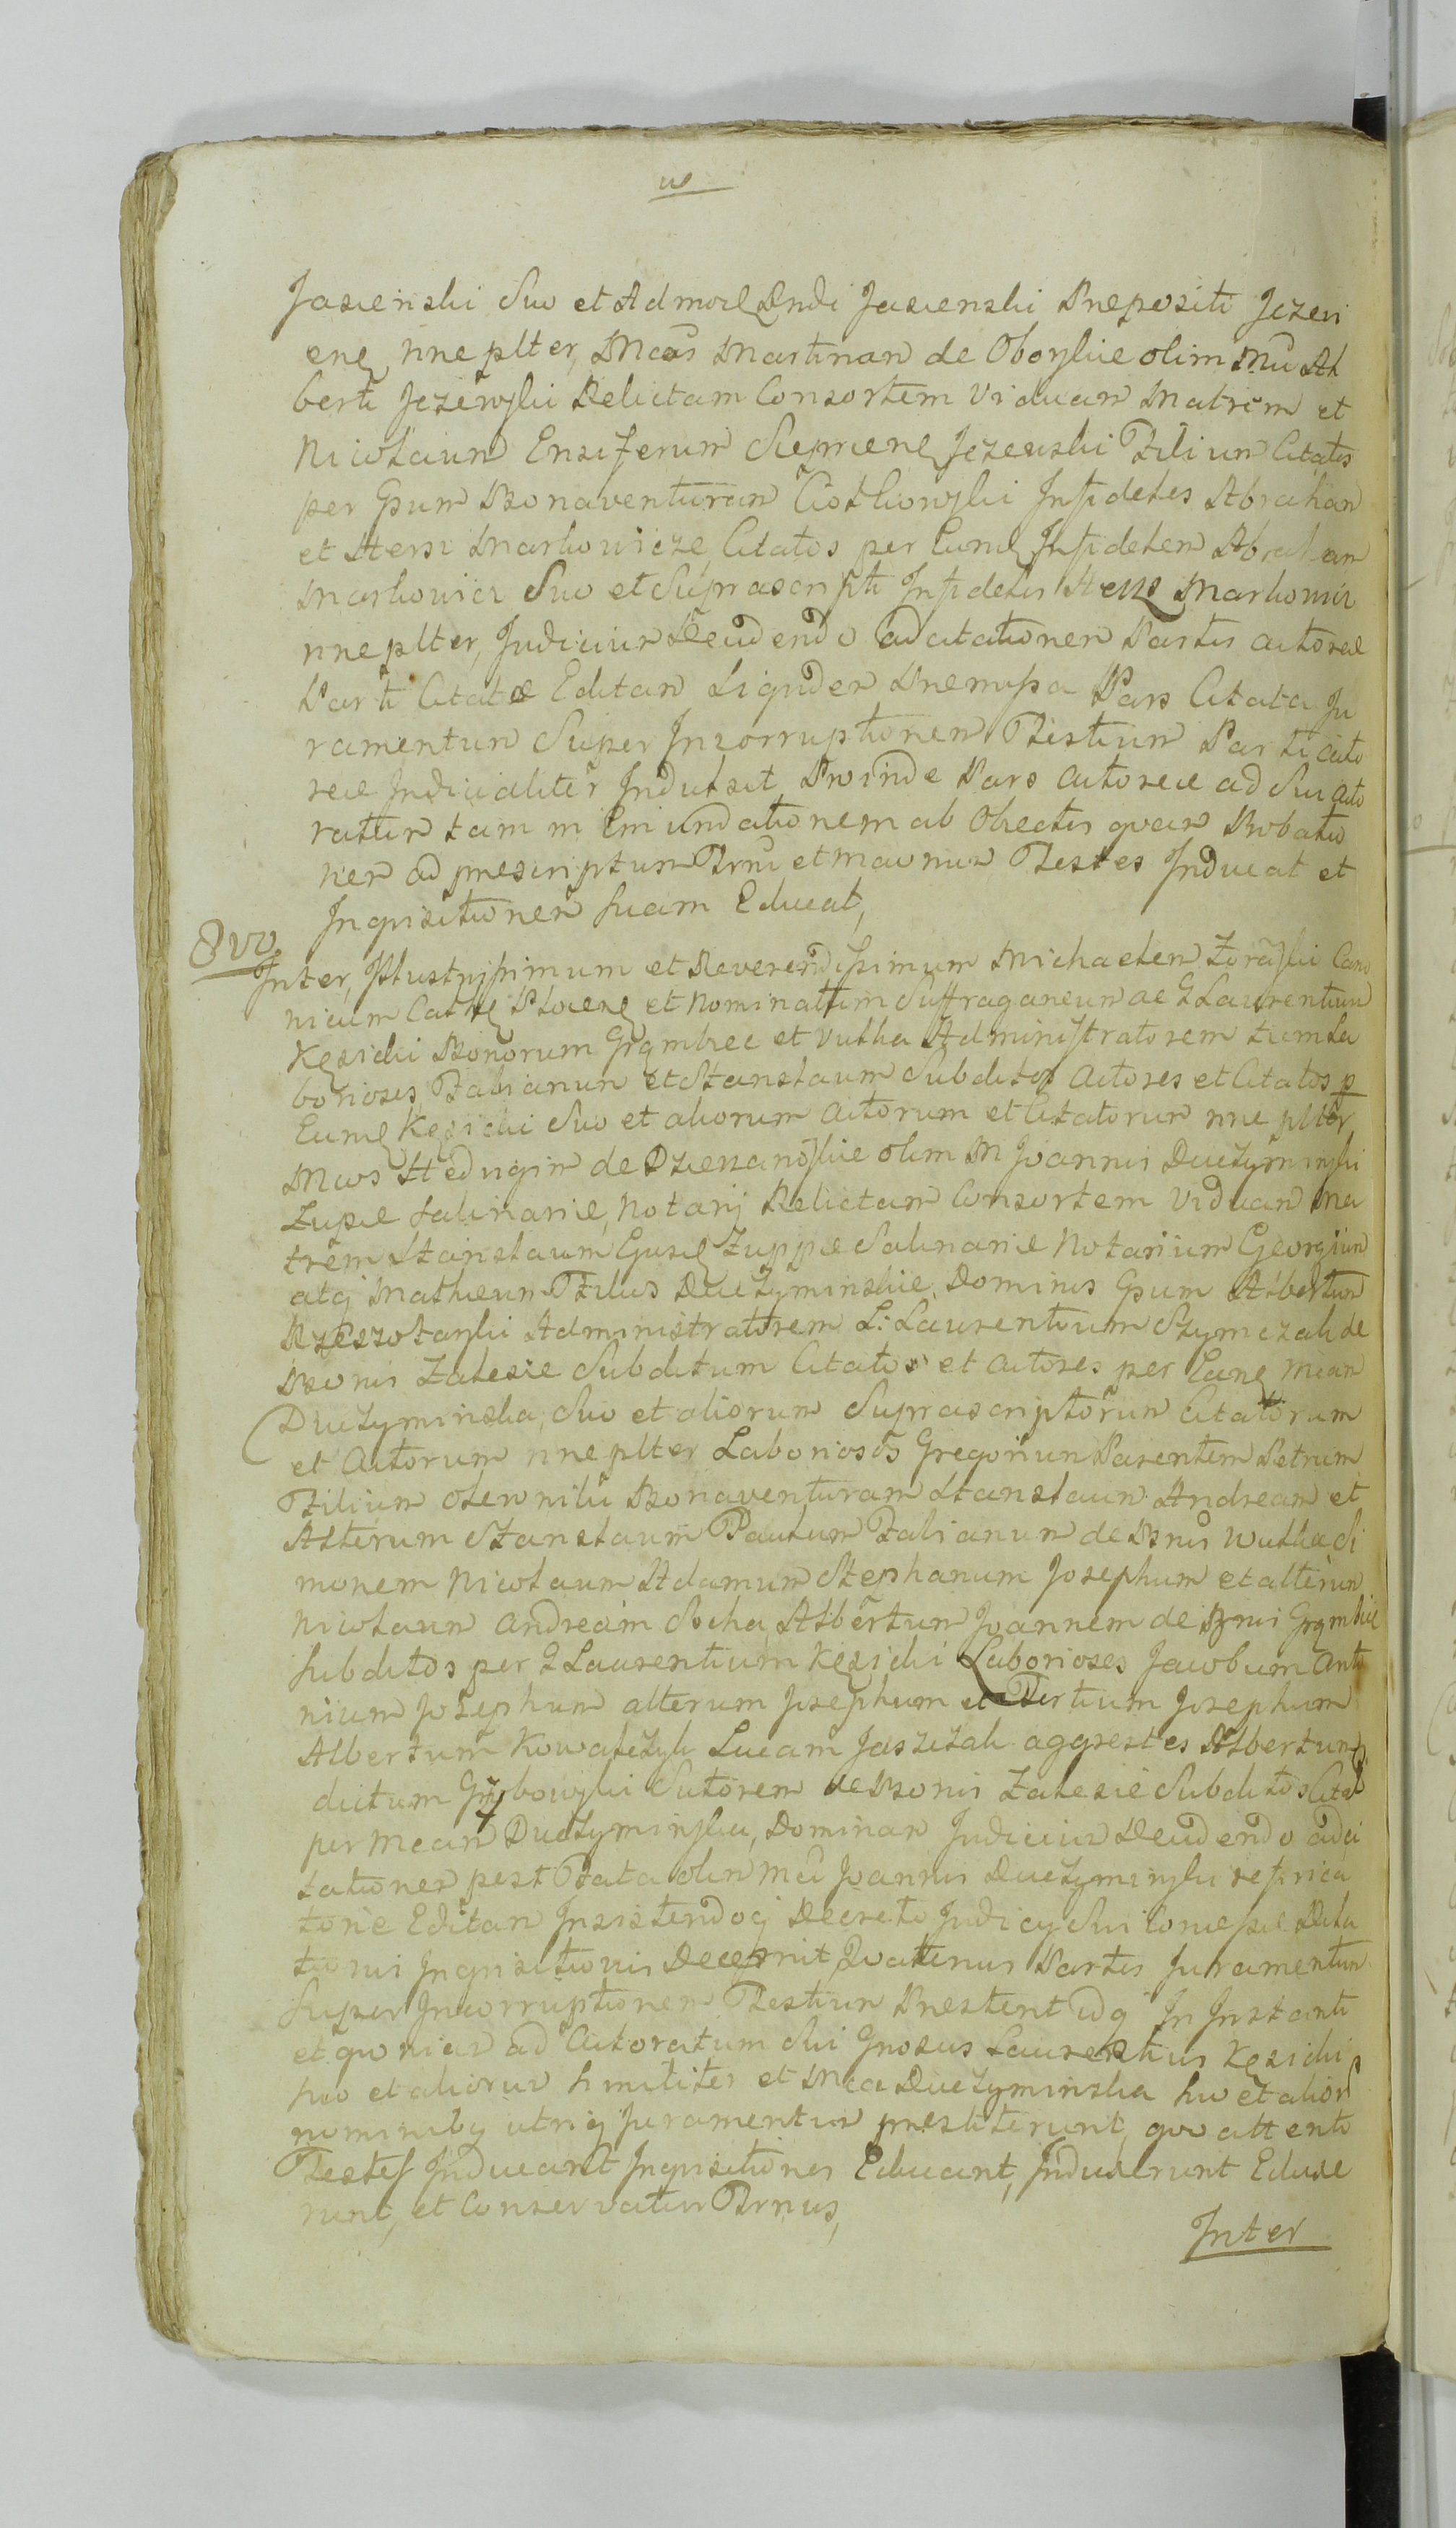 Jasienski Suo et Admodꝫ Rndi Jasienski Prepositi Jezevi
enꝫ nne plter, Mcas Martinam de Oborskie olim Mci Al
berti Jezewski Relictam Consortem Viduam Matrem et
Nicolaum Ensiferum Sieprcenꝫ Jezewski Filium Citatos
per Gsum Bonaventuram Ciotkowski Infideles Abraham
et Hersz Markowicze Citatos per Eundꝫ Infidelem Abraham
Markowicz Suo et Suprascripti Infidelis Hersz Markowicz
nne plter, Judicium Reudendo ad citationem Partis actoreæ
Parti Citatæ Editam Siquidem Premissa Pars Citata Ju
ramentum Super Incorruptionem Testium Parti acto
reæ Judicialiter Indulsit, Proinde Pars actorea ad Sui acto
ratum tam in Emundationem ab Obiectis quam Probatio
nem ad prescriptum Trni et maonum Testes Inducat et
Inquisitionem suam Educat,
8vo
Inter, Illustrissimum et Reverendissimum Michaelem Zorawski Cano
nicum Cathꝫ Plocenꝫ et Nominatum Suffraganeum ac G Laurentium
Kęsicki Bonorum Grąmbiec et Vulka Administratorem tum La
boriosos Fabianum et Stanslaum Subditos Actores et Citatos p
Eundꝫ Kęsicki Suo et aliorum Actorum et Citatorum nne plter
Mcos Hedvigim de Dzierzanoskie olim M Joannis Duczyminski
Zupæ Salinariæ, Notarij Relictam Consortem Viduam Ma
trem Stanslaum Ejusdꝫ Zuppæ Salinariæ Notarium Georgium
atqꝫ Matheum Filios Duczyminskie, Dominos Gsum Albertum
Rzeszotarski Administratorem L: Laurentium Szymczak de
Bonis Zalesie Subditum Citatos et Actores per Eandꝫ Mcam
Duczyminska, Suo et aliorum Suprascriptorum Citatorum
et Actorum nne plter Laboriosos Gregorium Parentem Petrum
Filium Olewniki Bonaventuram Stanslaum Andream et
Alterum Stanslaum Paulum Fabianum de Bnis Wulka Si
monem Nicolaum Adamum Stephanum Josephum et alterum
Nicolaum Andream Socha, Albertum Joannem de Bnis Grąmbie
Subditos per G Laurentium Kęsicki Laboriosos Jacobum Anto
nium Josephum alterum Josephum et Tertium Josephum
Albertum Kowalczyk Lucam Jaszczak aggrestes Albertum
dictum Grzybowski Sutorem de Bonis Zalesie Subditos Citat
per Mcam Duczyminska, Dominam Judicium Reudendo ad Ci
tationem post Fata olim Mci Joannis Duczyminski refrica
toriæ Editam Insistendoqꝫ Decreto Judicy Sui Comissæ Dila
tionis Inquisitionis Decernit Quatenus Partes Juramentum
Super Incorruptionem Testium Prestent idqꝫ In Instanti
et quoniam ad Actoratum Sui Gnosus Laurentius Kęsicki
suo et aliorum similiter et Mca Duczyminska suo et alior
nominibꝫ utriqꝫ Juramentum prestiterunt, quo attento
Testes Inducant Inquisitiones Educant, Induxerunt Eduxe
runt, et Conservatur Trnus,
Inter